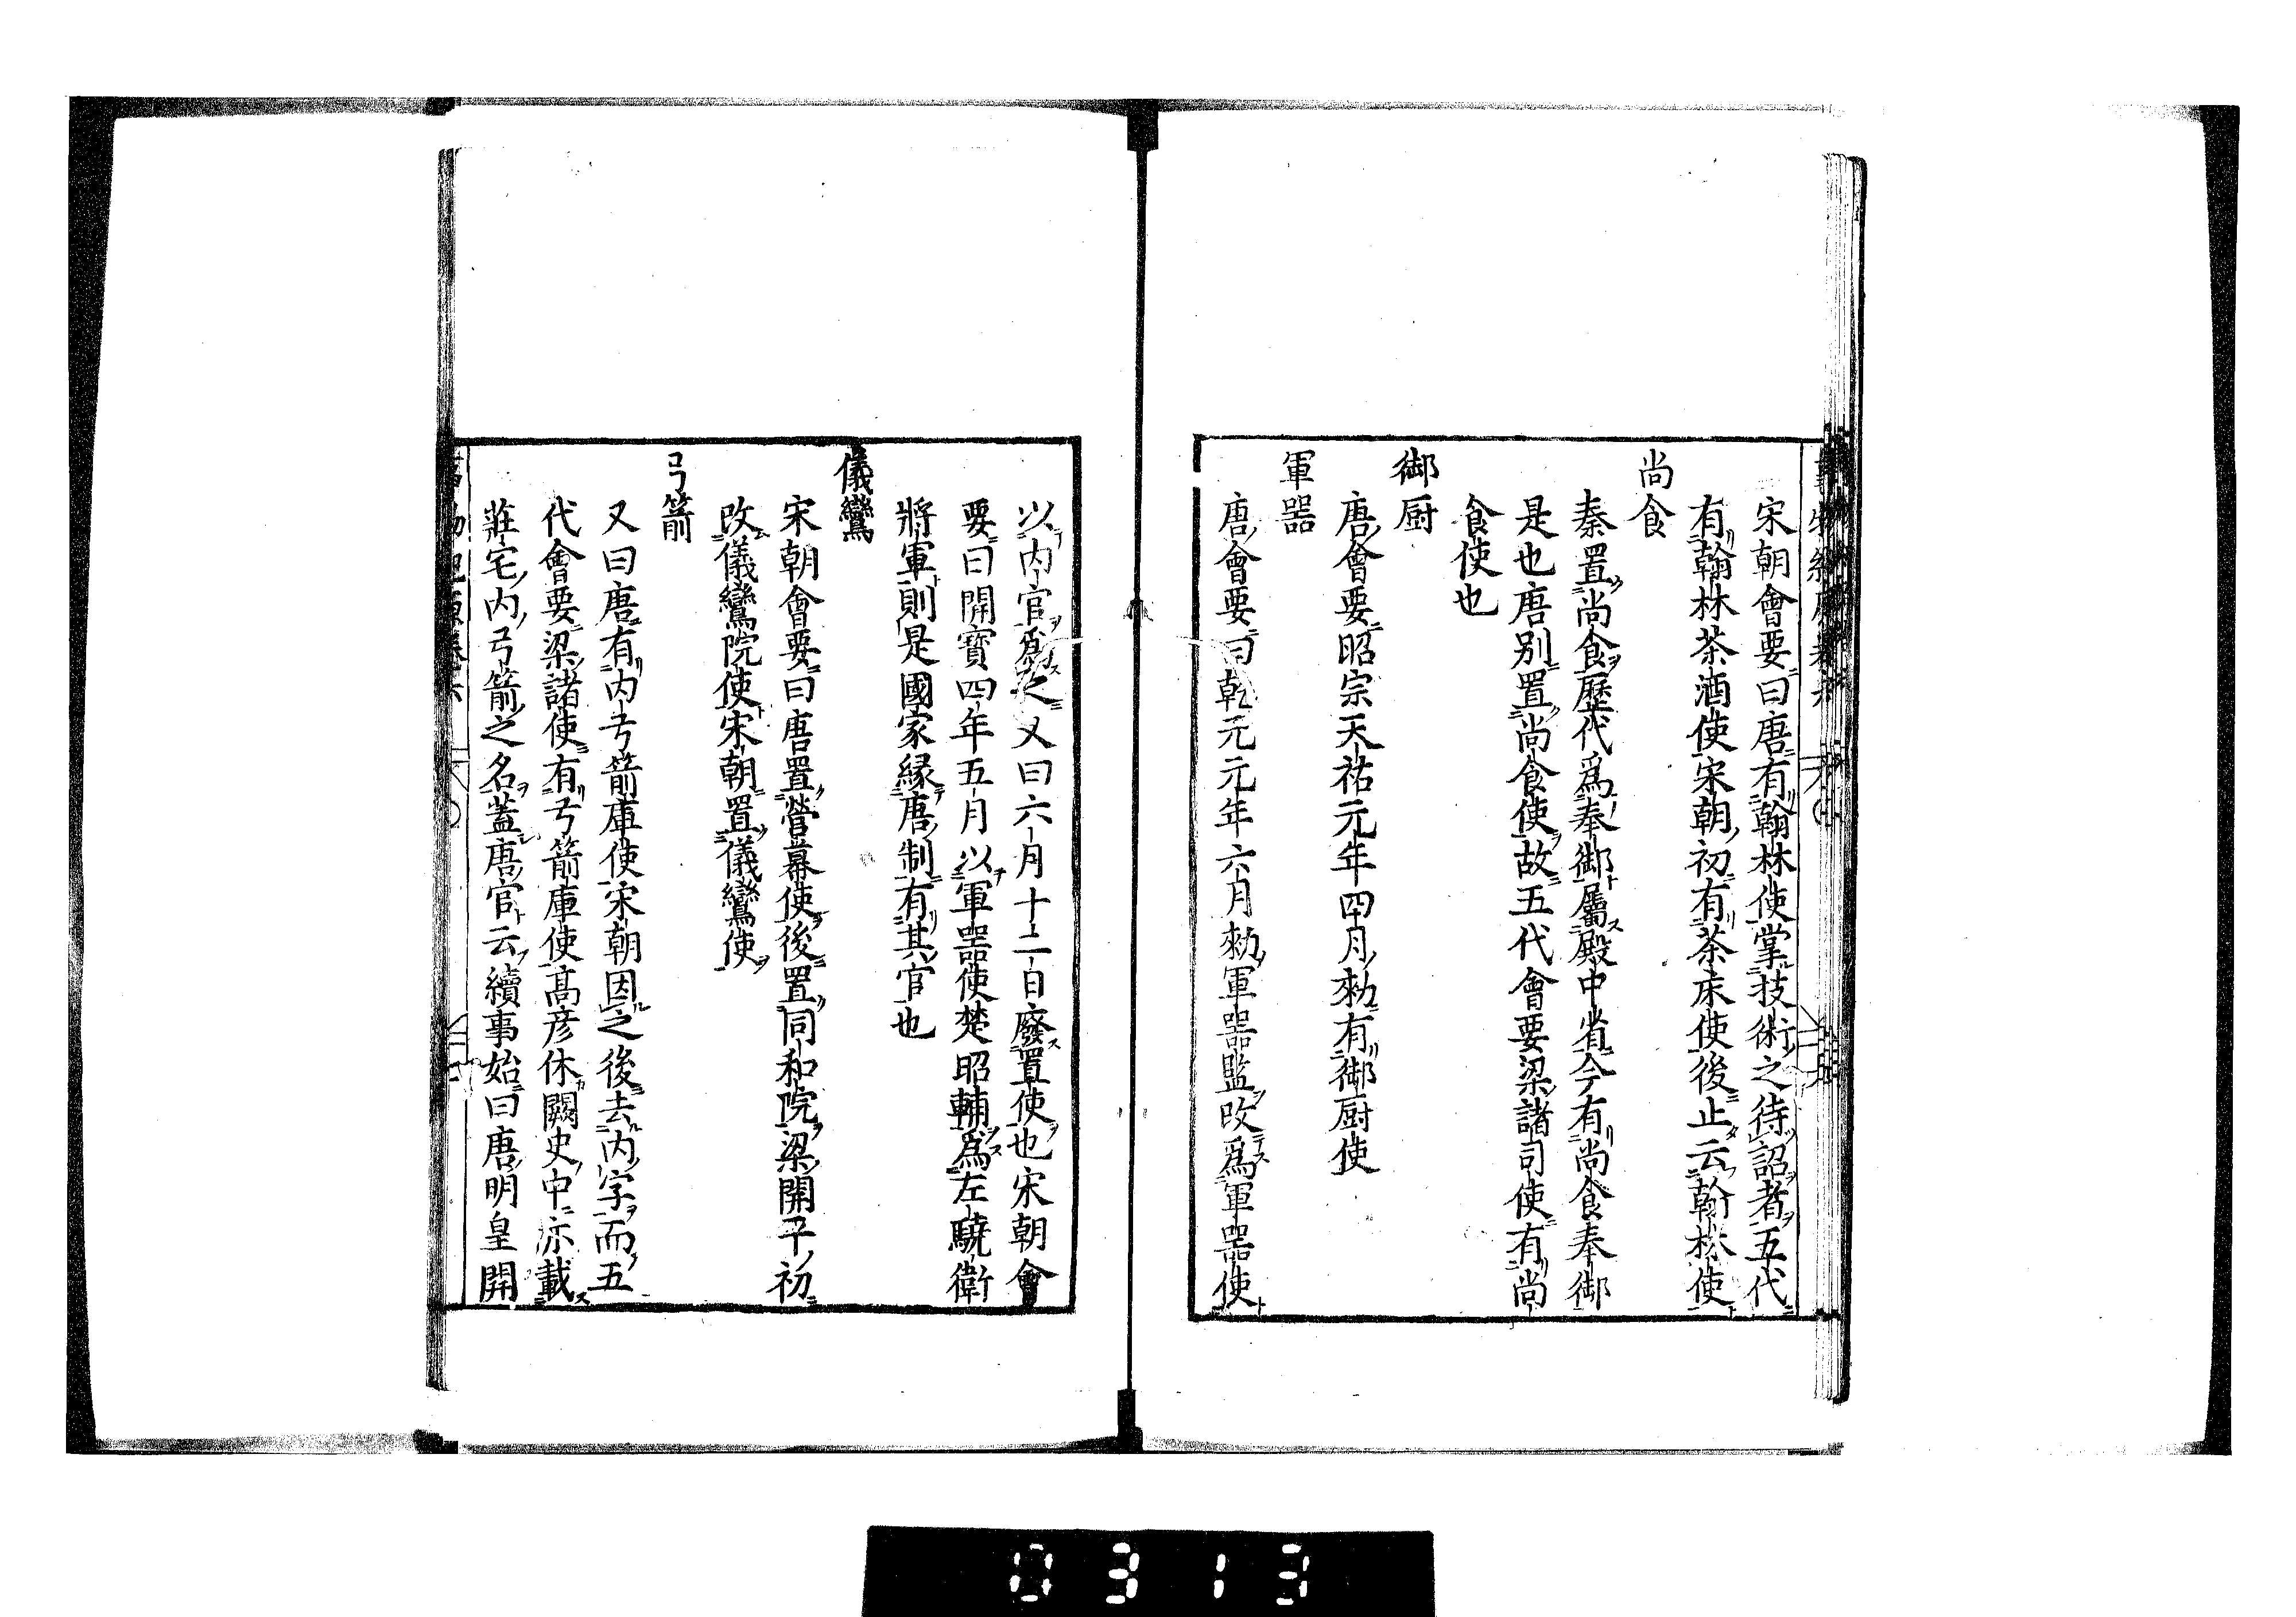 宋朝會要曰唐有翰林使掌技術之待詔者五代
有翰林茶酒使宋朝初有茶床使後止云翰林使
尚食
秦置尚食歷代爲奉御屬殿中省今有尚食奉御
是也唐別置尚食使故五代會要梁諸司使有尚
食使也
御厨
唐會要昭宗天祐元年四月勑有御厨使
軍器
唐會要曰乾元元年六月勑軍器監改爲軍器使
以内官爲之又曰六月十二日廢置使也宋朝會
要曰開寶四年五月以軍器使楚昭輔爲左驍衛
將軍則是國家緣唐制有其官也
儀鸞
宋朝會要曰唐置營幕使後置同和院梁開平初
改儀鸞院使宋朝置儀鸞使
弓箭
又曰唐有内弓箭庫使宋朝因之後去内字而五
代會要梁諸使有弓箭庫使高彦休闕史中亦載
莊宅内弓箭之名蓋唐官云續事始曰唐明皇開
0313